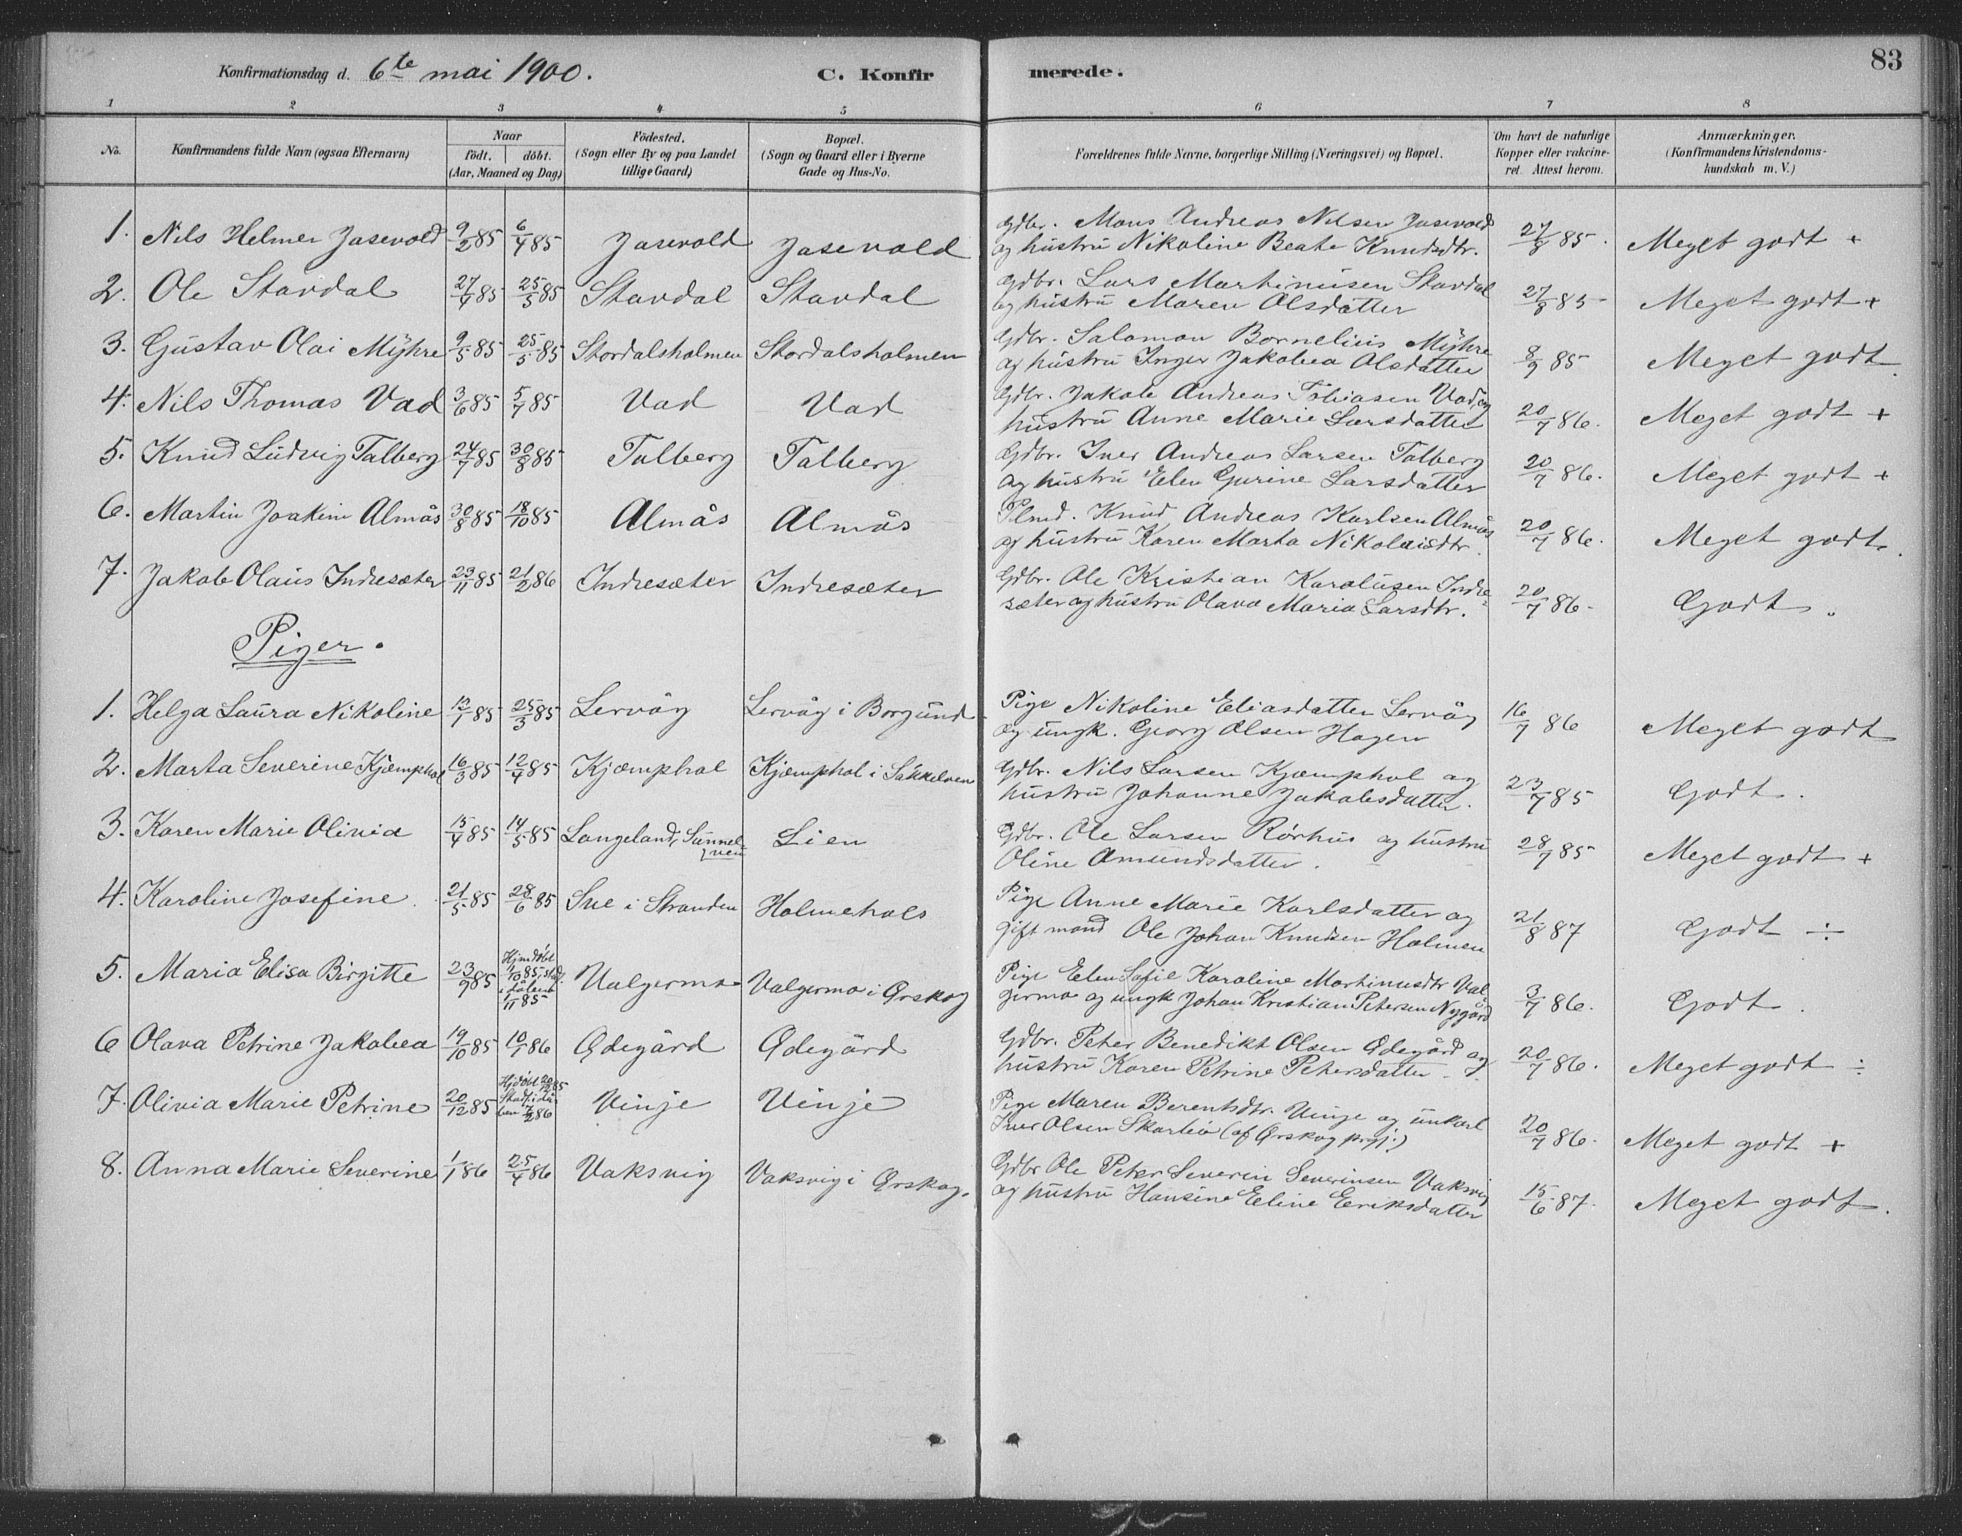 Konfirmationsdag d. 6te mai 1900. C. Konfir merede. 83
1 2 3 4 5 6 7 8
No. Konfirmandens fulde Navn (ogsaa Efternavn) Naar födt. döbt. (Aar, Maaned og Dag) Födested. (Sogn eller By og paa Landet tillige Gaard) Bopæl. (Sogn og Gaard eller i Byerne Gade og Hus-No. Forældrenes fulde Navne, borgerlige Stilling (Næringsvei) og Bopæl. Om havt de naturlige Kopper eller vakcineret. Attest herom. Anmærkninger. (Konfirmandens Kristendomskundskab m. V.)
1. Nils Helmer Jasevold 9/2 85 6/4 85 Jasevold Jasevold Gdbr. Mons Andreas Nilsen Jasevold
og hustru Nikoline Beate Knudsdtr. 27/8 85. Meget godt +
2. Ole Stavdal 27/4 85 25/5 85 Stavdal Stavdal Gdbr. Lars Martinusen Stavdal
og hustru Maren Olsdatter 27/8 85 Meget godt +
3. Gustav Olai Myhre 9/5 85 25/5 85 Stordalsholmen Stordalsholmen Gdbr. Salomon Bornelius Myhre
og hustru Inger Jakobea Olsdatter 8/9 85 Meget godt.
4. Nils Thomas Vad 3/6 85 5/7 85 Vad Vad Gdbr. Jakob Andreas Tobiasen Vad, og
hustru Anne Marie Larsdatter 20/7 86. Meget godt +
5. Knud Ludvig Talberg 24/7 85 30/8 85 Talberg Talberg Gdbr. Iver Andreas Larsen Talberg
og hustru Elen Gurine Larsdatter 20/7 86. Meget godt +
6. Martin Joakim Almås 30/8 85 18/10 85 Almås Almås Plmd. Knud Andreas Karlsen Almås
og hustru Karen Marta Nikolaisdtr. 20/7 86. Meget godt.
7. Jakob Olaus Indresæter 23/11 85 21/2 86 Indresæter Indresæter Gdbr. Ole Kristian Karolusen Indre-
sæter og hustru Olava Maria Larsdtr. 20/7 86. Godt.
Piger.
1. Helga Laura Nikoline 13/1 85 25/3 85 Lervåg Lervåg i Borgund. Pige Nikoline Eliasdatter Lervåg
og ungk. Georg Olsen Hagen 16/7 86 Meget godt
2. Marta Severine Kjæmphol 16/3 85 12/4 85 Kjæmphol Kjæmphol i Søkkelven Gdbr. Nils Larsen Kjæmphol og
hustru Johanne Jakobsdatter. 23/7 85 Godt.
3. Karen Marie Olivia 15/4 85 14/5 85 Langeland, Sunnel-
ven Lien Gdbr. Ole Larsen Rørhus og hustru
Oline Amundsdatter. 28/7 85 Meget godt +
4. Karoline Josefine. 21/5 85 28/6 85 Sve i Stranden Holmehals Pige Anne Marie Karlsdatter og
gift mand Ole Johan Knudsen Holmen 21/8 87 Godt ÷
5. Maria Elisa Birgitte 23/9 85 Hjmdøbt
1/10 85 stadf.
1/11 85 Valgermo Valgermo i Ørskog Pige Elen Sofie Karoline Martinusdtr Val-
germo og ungk Johan Kristian Petersen Nygård 3/7 86. Godt.
6 Olava Petrine Jakobea 19/10 85 10/1 86 Ødegård Ødegård Gdbr. Peter Benedikt Olsen Ødegård og
hustru Karen Petrine Petersdatter 20/7 86. Meget godt ÷
7. Olivia Marie Petrine 20/12 85 Hjdøbt 20/12 85
Stadf. i kir-
ken 7/2 86 Vinje Vinje Pige Maren Berentsdtr. Vinje og unkarl
Iver Olsen Skarbø (af Ørskog prgj.) 20/7 86. Meget godt +
8. Anna Marie Severine 1/1 86 25/4 86 Vaksvig Vaksvig i Ørskog. Gdbr Ole Peter Severin Severinsen Vaksvig
og hustru Hansine Eline Eriksdatter 15/6 87. Meget godt.